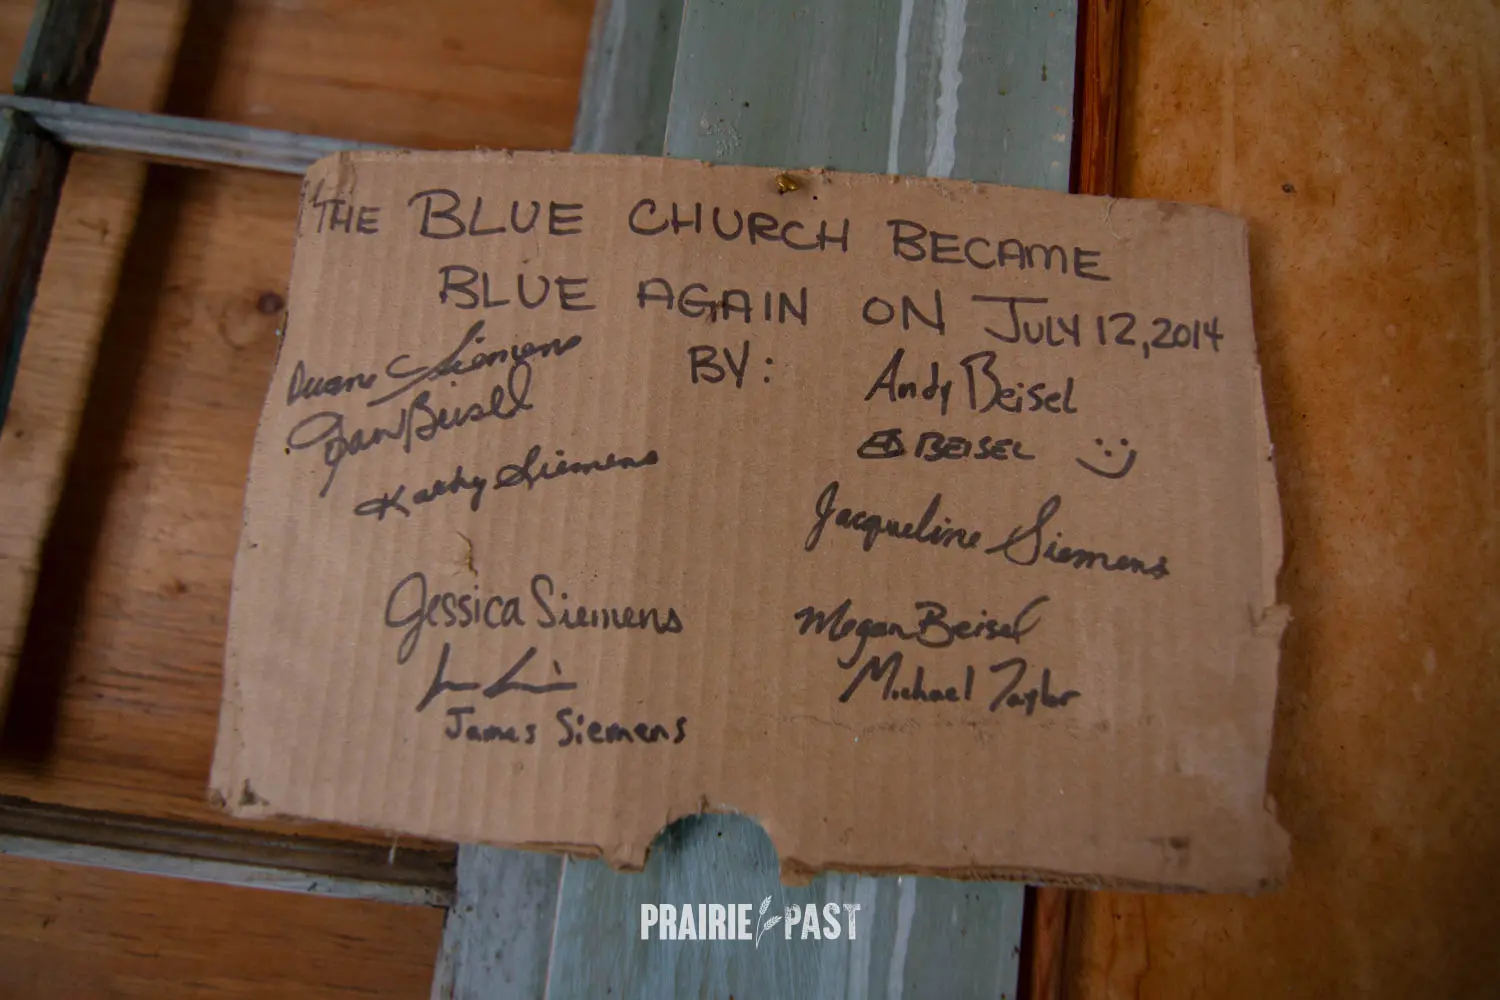 THE BLUE CHURCH BECAME
BLUE AGAIN ON JULY 12, 2014
BY:
Duane C Siemens
Joan Beisel
Kathy Siemens
Jessica Siemens
James Siemens
Andy Beisel
ED BEISEL
Jacqueline Siemens
Megan Beisel
Michael Taylor
PRAIRIE PAST